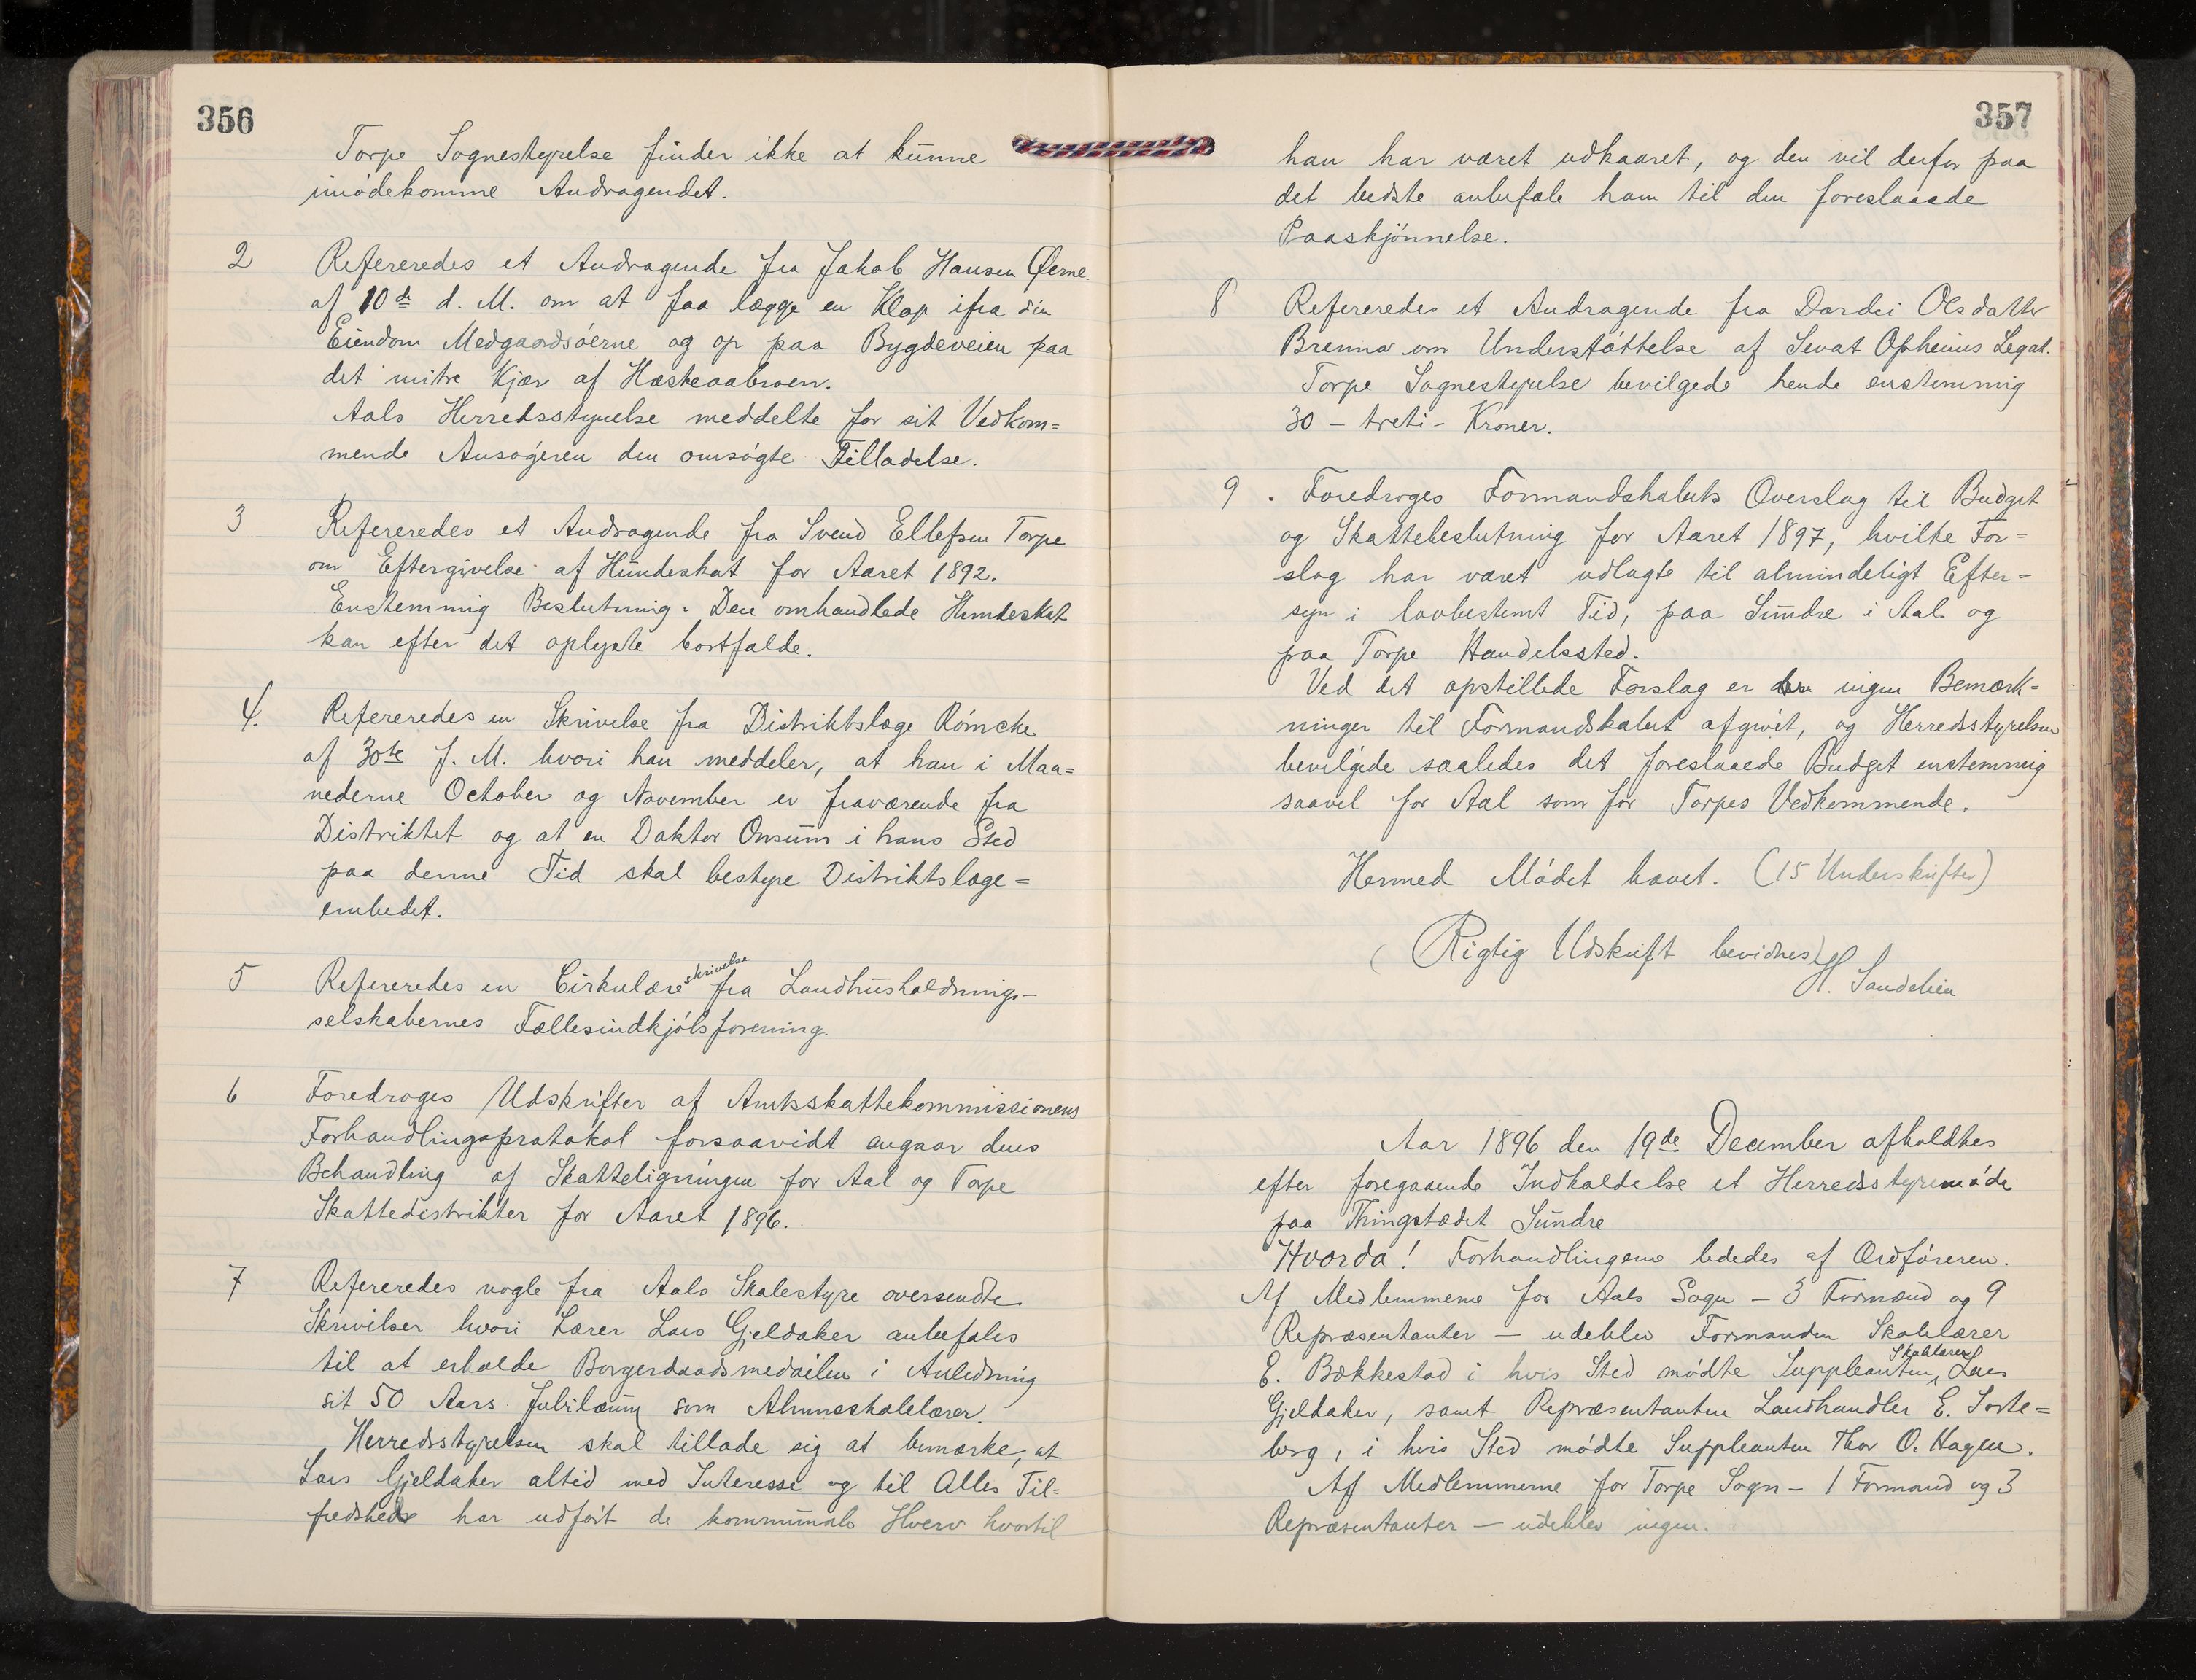 356
Torpe Sognestyrelse finder ikke at kunne
imødekomme Andragendet.
2 Refereredes et Andragende fra Jakob Hansen Øerne
af 10de d. M. om at faa lægge en Klop ifra sin
Eiendom Medgaardsøerne og op paa Bygdeveien paa
det mitre Kjær af Hæsteaabroen.
Aals Herredsstyrelse meddelte for sit Vedkom=
mende Ansøgeren den omsøgte Tilladelse.
3 Refereredes et Andragende fra Svend Ellefsen Torpe
om Eftergivelse af Hundeskat for Aaret 1892.
Enstemmig Beslutning: Den omhandlede Hundeskat
kan efter det oplyste bortfalde.
4. Refereredes en Skrivelse fra Distriktslæge Römcke
af 30te f. M. hvori han meddeler, at han i Maa=
nederne October og November er fraværende fra
Distriktet og at en Doktor Onsum i hans Sted
paa denne Tid skal bestyre Distriktslæge=
embedet.
5 Refereredes en Cirkulæreskrivelse fra Landhusholdnings-
selskabernes Fællesindkjøbsforening.
6 Foredroges Udskrifter af Amtsskattekommissionens
Forhandlingsprotokol forsaavidt angaar dens
Behandling af Skatteligningen for Aal og Torpe
Skattedistrikter for Aaret 1896.
7 Refereredes nogle fra Aals Skolestyre oversendte
Skrivelser hvori Lærer Lars Gjeldaker anbefales
til at erholde Borgerdaadsmedailen i Anledning
sit 50 Aars Jubilæum som Almueskolelærer.
Herredsstyrelsen skal tillade sig at bemærke, at
Lars Gjeldaker altid med Interesse og til Alles Til=
fredshed har udført de kommunale Hverv hvortil
357
han har været udkaaret, og den vil derfor paa
det bedste anbefale ham til den foreslaaede
Paaskjønnelse.
8 Refereredes et Andragende fra Dordei Olsdatter
Brenna om Understøttelse af Sevat Opheims Legat.
Torpe Sognestyrelse bevilgede hende enstemmig
30 – treti – Kroner.
9. Foredroges Formandskabets Overslag til Budget
og Skattebeslutning for Aaret 1897, hvilke For=
slag har været udlagte til almindeligt Efter=
syn i lovbestemt Tid, paa Sundre i Aal og
paa Torpe Handelssted.
Ved det opstillede Forslag er ingen Bemærk=
ninger til Formandskabet afgivet, og Herredsstyrelsen
bevilgede saaledes det foreslaaede Budget enstemmig
saavel for Aal som for Torpes Vedkommende.
Hermed Mødet hævet. (15 Underskrifter)
(Rigtig Udskrift bevidnes)
H. Sandelien
Aar 1896 den 19de December afholdtes
efter foregaaende Indkaldelse et Herredsstyremøde
paa Thingstedet Sundre
Hvorda! Forhandlingene lededes af Ordføreren.
Af Medlemmerne for Aals Sogn – 3 Formænd og 9
Repræsentanter – udeblev Formanden Skolelærer
E. Bækkestad i hvis Sted mødte Suppleanten, Skolelærer Lars
Gjeldaker, samt Repræsentanten Landhandler E. Sorte=
berg, i hvis Sted mødte Suppleanten Thor O. Hagen.
Af Medlemmerne for Torpe Sogn – 1 Formand og 3
Repræsentanter – udeblev ingen.